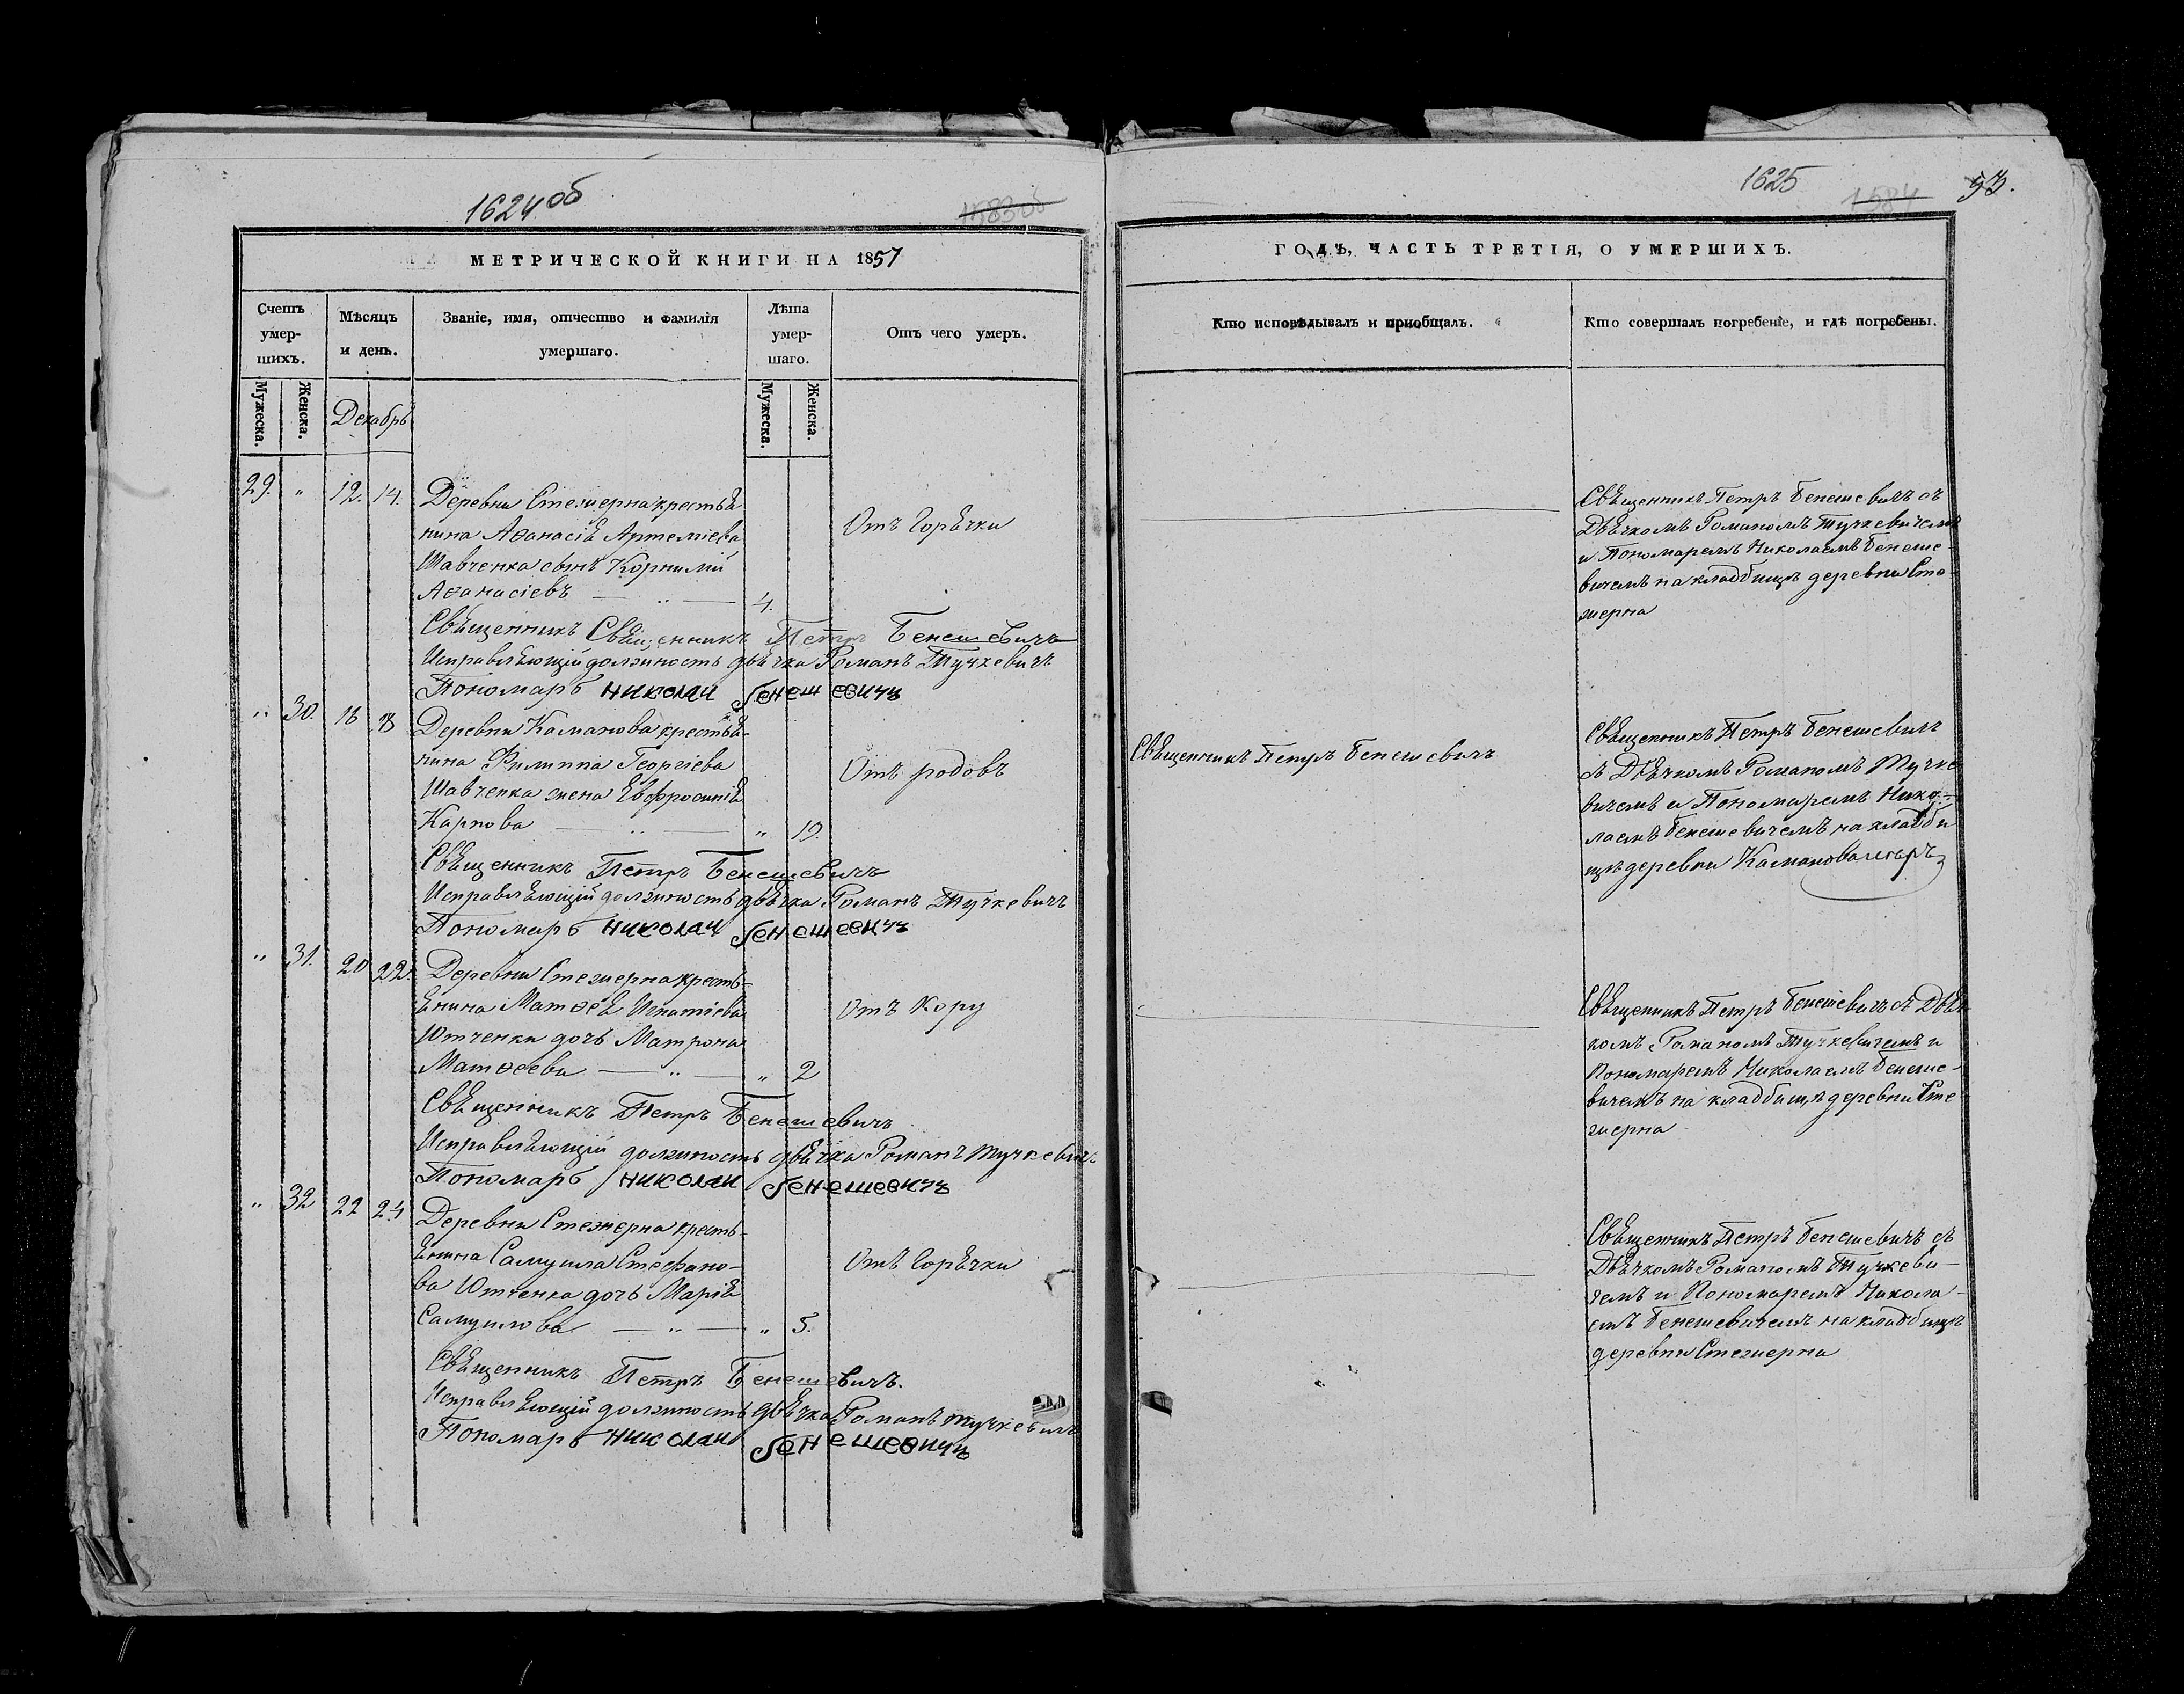 1624 об
1583 об
МЕТРИЧЕСКОЙ КНИГИ НА 1857
Счетъ умер-шихъ.
Мѣсяцъ и день.
Званіе, имя, отчество и фамилія умершаго.
Лѣта умер-шаго.
Отъ чего умеръ.
Мужеска.
Женска.
Декабрь
Мужеска.
Женска.
29. " 12. 14. Деревни Стежерна крестья
нина Аѳанасія Артеміева
Отъ Горячки
Шавченка сынъ Корнилій
Аѳанасіевъ — " — 4.
Священникъ Священникъ Петръ Бенешевичъ
Исправляющій должность дьячка Романъ Тучкевичъ
Пономарь Николай Бенешевичъ
" 30. 18 18 Деревни Каманова крестья-
нина Филиппа Георгіева
Отъ родовъ
Шавченка жена Евфросинія
Карпова — " — " 19.
Священникъ Петръ Бенешевичъ
Исправляющій должность дьячка Романъ Тучкевичъ
Пономарь Николай Бенешевичъ
" 31. 20 22. Деревни Стежерна кресть-
янина Матѳея Игнатіева
Отъ Кору
Ютченки дочь Матрона
Матѳеева — " — " 2
Священникъ Петръ Бенешевичъ
Исправляющій должность дьячка Романъ Тучкевичъ
Пономарь Николай Бенешевичъ
" 32 22 24 Деревни Стежерна кресть-
янина Самуила Стефано-
Отъ Горячки
ва Ютченка дочь Марія
Самуилова — " — " 5.
Священникъ Петръ Бенешевичъ.
Исправляющій должность дьячка Романъ Тучкевичъ
Пономарь Николай Бенешевичъ
1625
1584
53.
ГОДЪ, ЧАСТЬ ТРЕТІЯ, О УМЕРШИХЪ.
Кто исповѣдывалъ и приобщалъ.
Кто совершалъ погребеніе, и гдѣ погребены.
Священникъ Петръ Бенешевичъ съ
Дьячкомъ Романомъ Тучкевичемъ
и Пономаремъ Николаемъ Бенеше-
вичемъ на кладбищѣ деревни Сте-
жерна
Священникъ Петръ Бенешевичъ
Священникъ Петръ Бенешевичъ
съ Дьячкомъ Романомъ Тучке
вичемъ и Пономаремъ Нико-
лаемъ Бенешевичемъ на кладби
щѣ деревни Каманова
Священникъ Петръ Бенешевичъ съ Дьяч
комъ Романомъ Тучкевичемъ и
Пономаремъ Николаемъ Бенеше-
вичемъ на кладбищѣ деревни Сте-
жерна
Священникъ Петръ Бенешевичъ съ
Дьячкомъ Романомъ Тучкеви-
чемъ и Пономаремъ Никола-
емъ Бенешевичемъ на кладбищѣ
деревни Стежерна